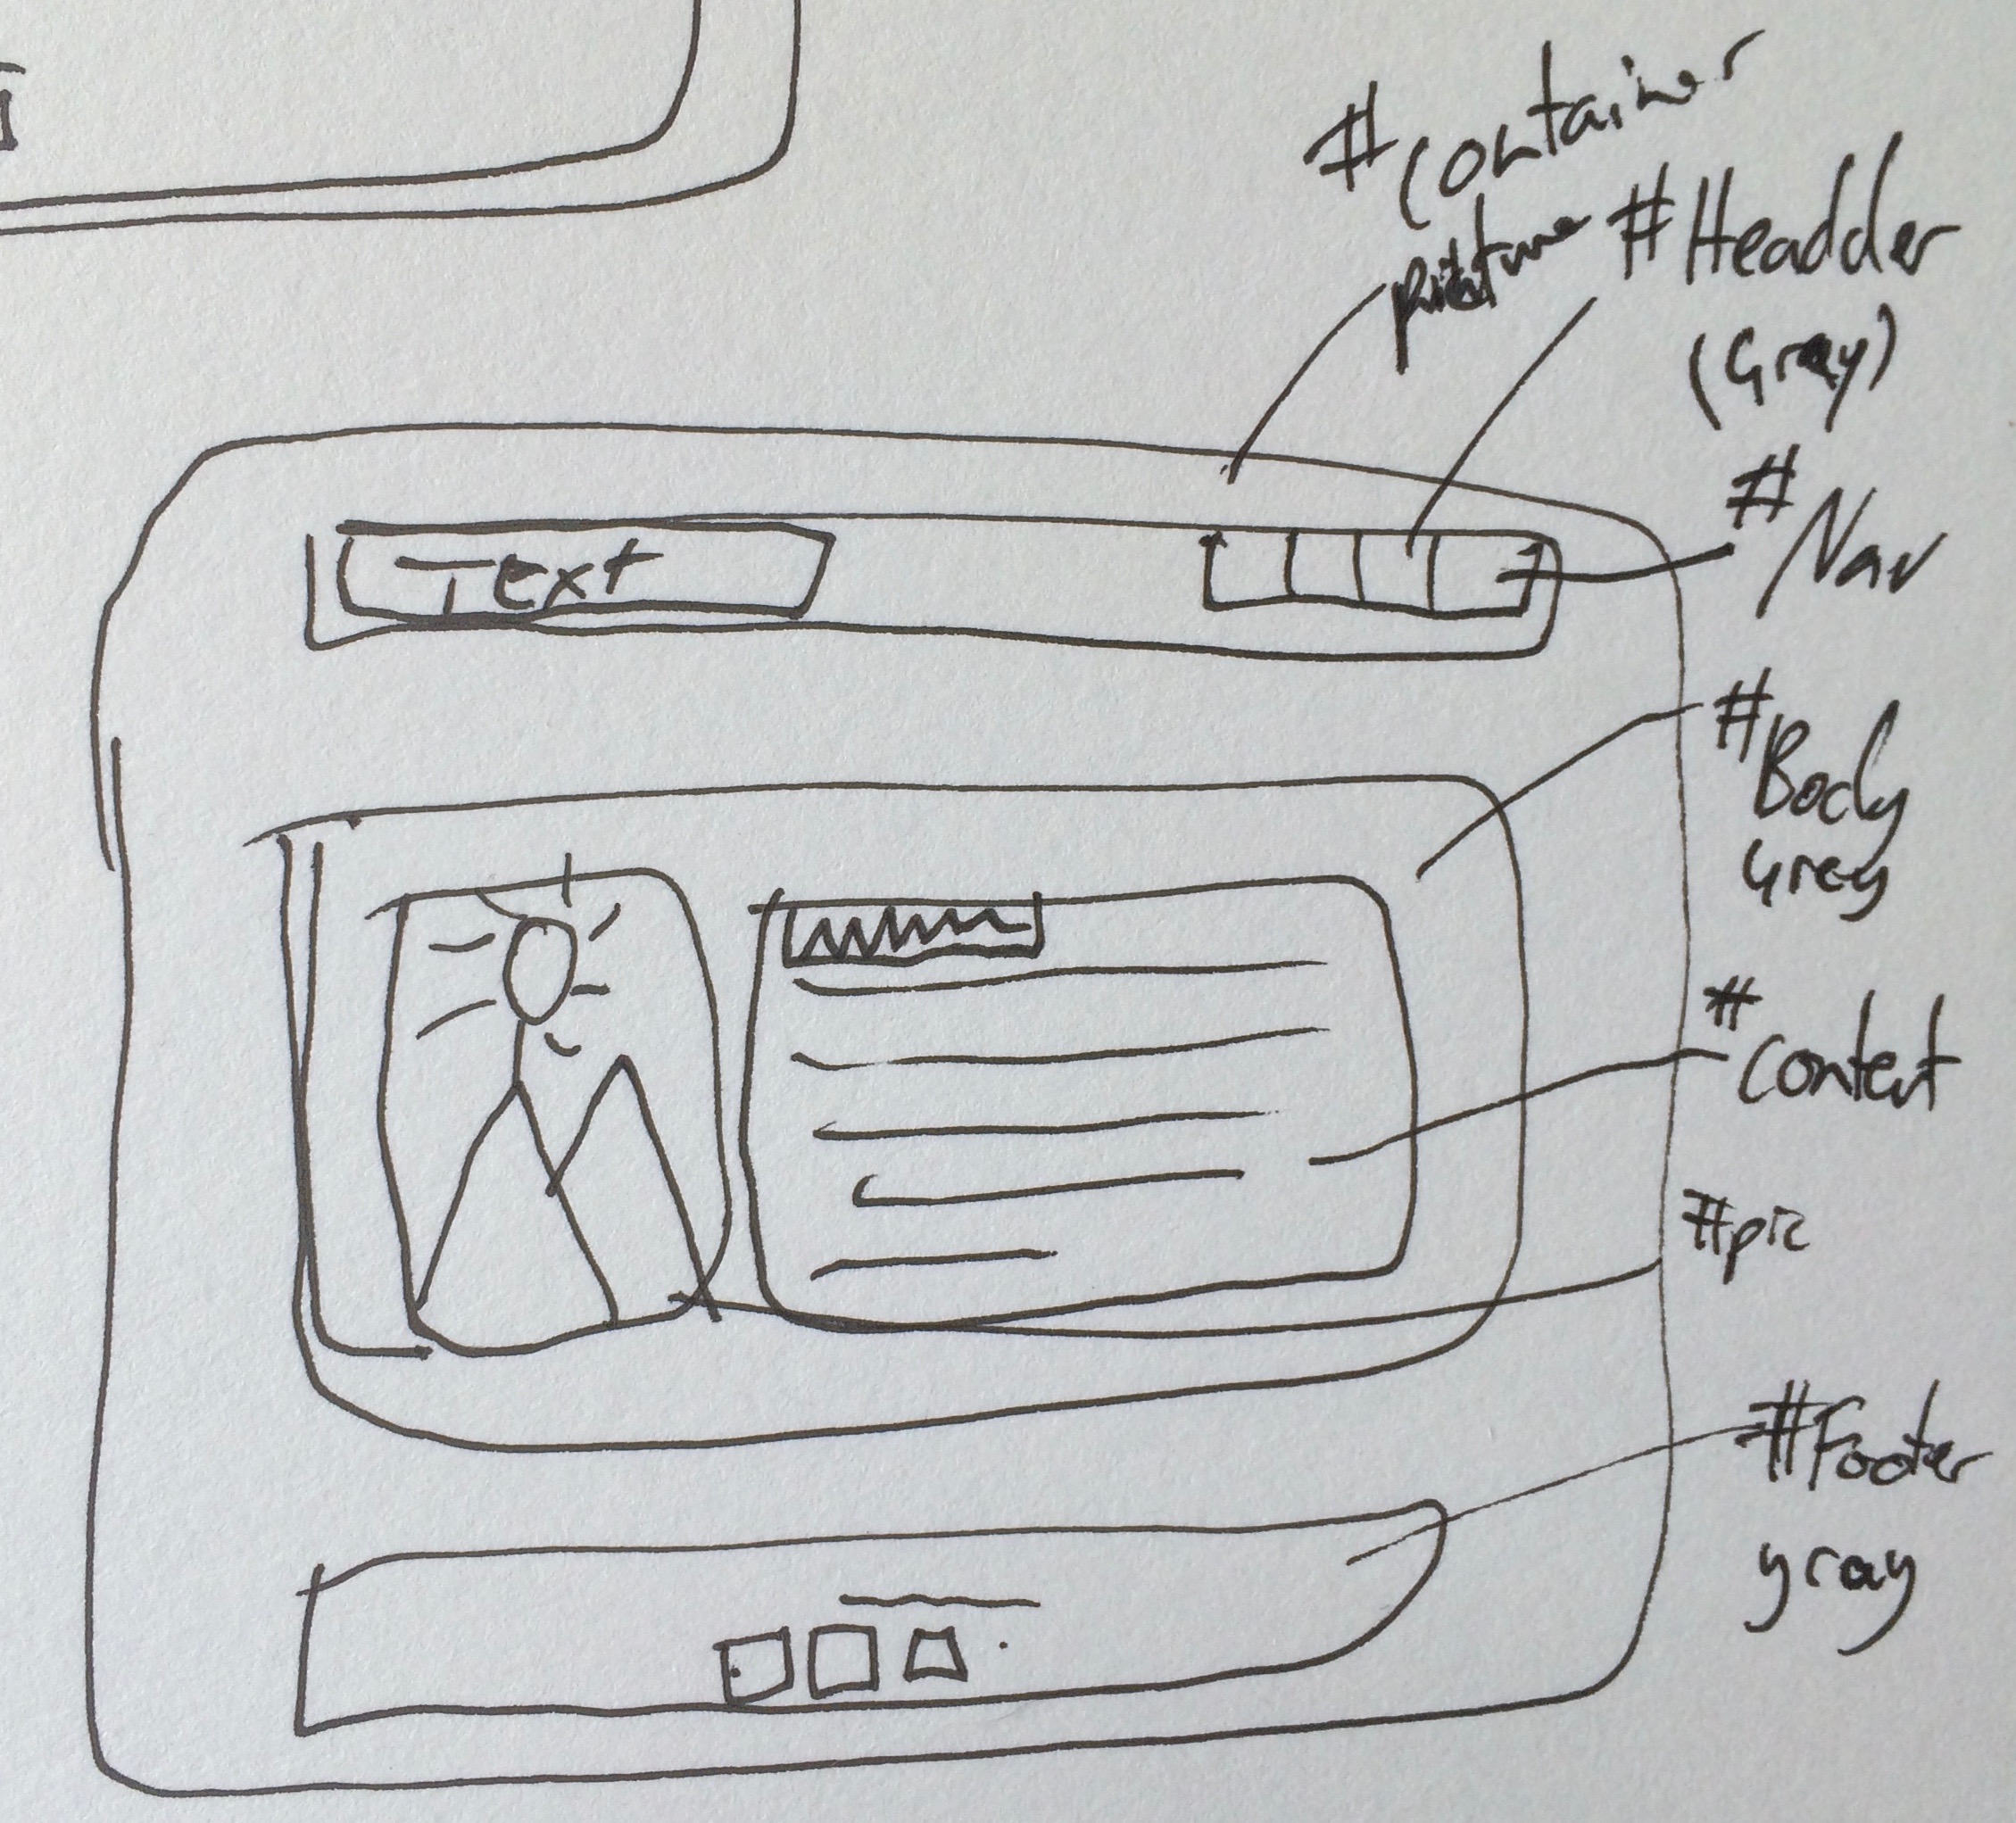 #container
picture
#Headder
(Gray)
Text
#Nav
#Body
Grey
#content
#pic
#Footer
gray